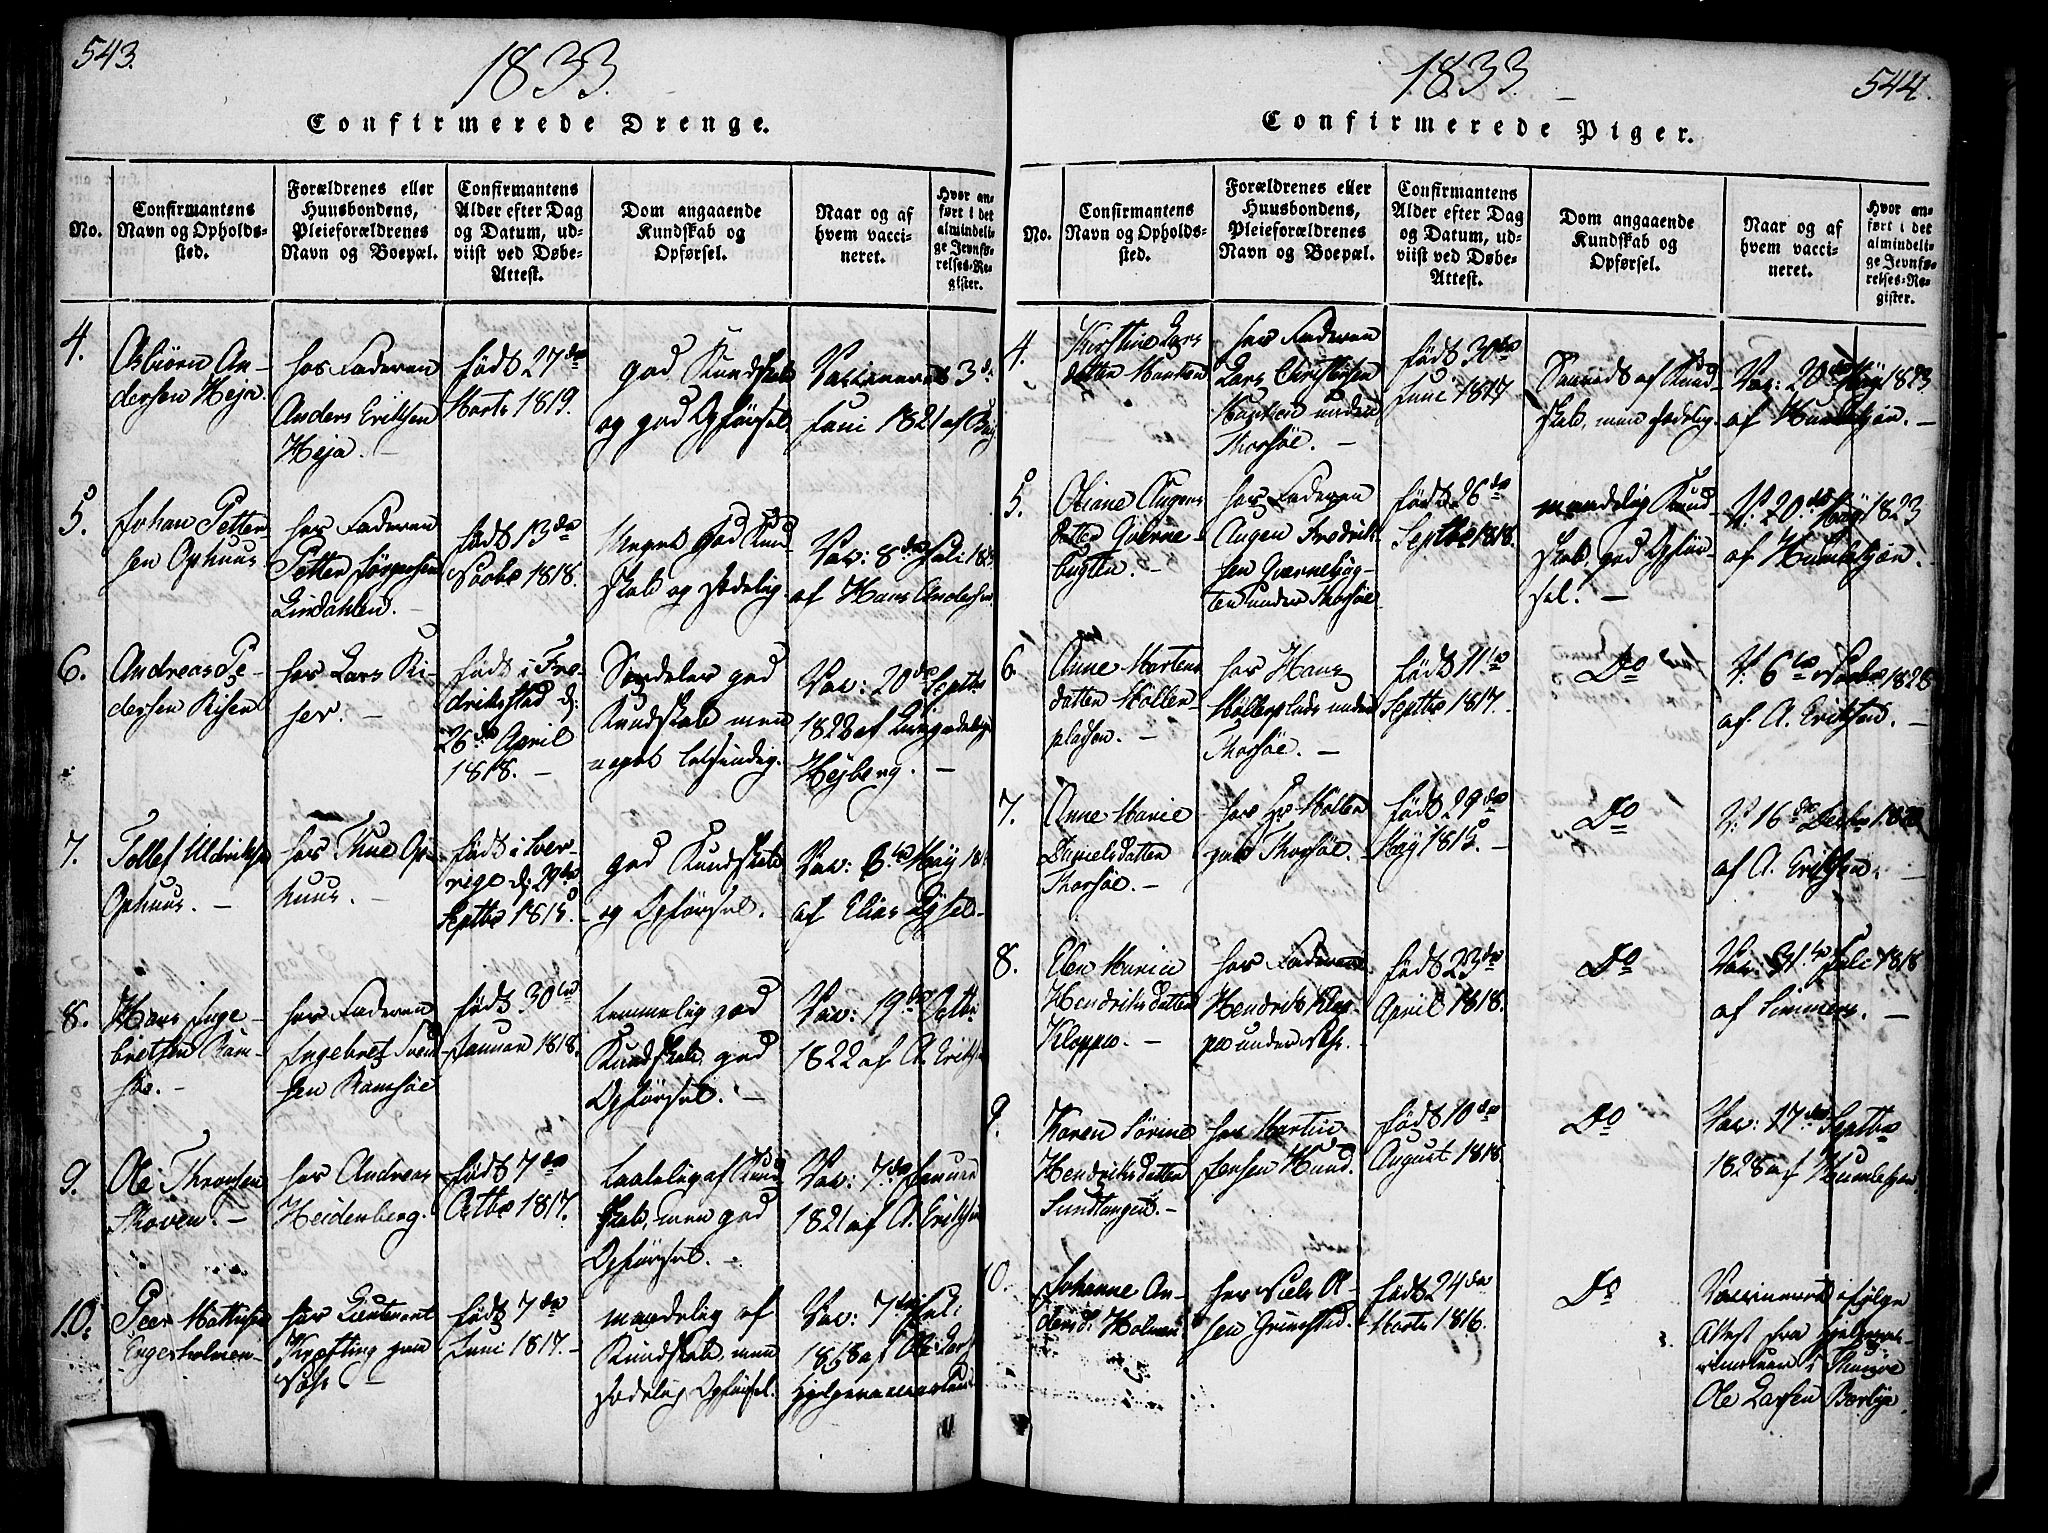 543.
1833.
Confirmerede Drenge.
No.
Confirmantens
Navn og Opholds-
sted.
Forældrenes eller
Huusbondens,
Pleieforældrenes
Navn og Boepæl.
Confirmantens
Alder efter Dag
og Datum, ud-
viist ved Døbe-
Attest.
Dom angaaende
Kundskab og
Opførsel.
Naar og af
hvem vacci-
neret.
Hvor an-
ført i det
almindeli-
ge Jevnfø-
relses-Re-
gister.
4.
Asbiörn An-
dersen Heja.
hos Faderen
Anders Eriksen
Heja. –
född 27de
Marts 1819.
god Kundskab
og god Opförsel.
Vaccineret 3d
Juni 1821 af
5.
Johan Petter-
sen Ophuus
hos Faderen
Petter Jörgensen
Lindahlen. –
född 13de
Novbr 1818.
Meget god Kund-
skab og sædelig.
Vac: 8de Juli
af Hans Andersen
6.
Andreas Pe-
dersen Risen
hos Lars Ri-
ser. –
född i Fre-
drikstad d:
26de April
1818. –
Særdeles god
Kundskab men
noget letsindig.
Vac: 20de Septbr
1822 af
Hejberg. –
7.
Tollef Uldriksen
Ophuus. –
hos Thue Op-
huus. –
född i Sver-
rige d: 29de
Septbr 1815.
god Kundskab
og Opförsel.
Vac: 6te Maÿ
af Elias
8.
Hans Inge-
bretsen Ram-
söe. –
hos Faderen
Ingebret Svend-
sen Ramsöe
född 30te
Januar 1818.
temmelig god
Kundskab, god
Opförsel. –
Vac: 19de Octbr
1822 af A. Eriksen
9.
Ole Thronsen
Skoven. –
hos Andreas
Heidenberg.
född 7de
Octbr 1817.
taalelig af Kund-
skab, men god
Opförsel. –
Vac: 7de Januar
1821 af A. Eriksen
10.
Peer Mathisen
Engesholmen –
hos Lieutenant
Krefting paa
Näss –
född 7de
Juni 1817. –
maadelig af
Kundskab, men
sædelig Opförsel.
Vac: 7de Juli
1818 af Ole Lars
Hjelpevaccinateur
1833.
544.
Confirmerede Piger.
No.
Confirmantens
Navn og Opholds-
sted.
Forældrenes eller
Huusbondens,
Pleieforældrenes
Navn og Boepæl.
Confirmantens
Alder efter Dag
og Datum, ud-
viist ved Døbe-
Attest.
Dom angaaende
Kundskab og
Opførsel.
Naar og af
hvem vacci-
neret.
Hvor an-
ført i det
almindeli-
ge Jevnfø-
relses-Re-
gister.
4.
Kirstine Lars
datter
hos Faderen
Lars Christensen
under
Thorsöe. –
född 30te
Juni 1817
Svarede af Kund-
skab, men sædelig.
Vac: 20de Maÿ 1823
af Humlekjær. –
5.
Oliane Augens
datter Qværne-
bugten. –
hos Faderen
Augen Fredrik-
sen Qværnebög-
ten under Thorsöe
född 26de
Septbr 1818.
maadelig Kund-
skab, god Opför-
sel. –
V: 20de Maÿ 1823
af Humlekjær.
6
Anne Martens
datter Möllen-
pladsen. –
hos Hans
Mölleplads under
Thorsöe. –
född 11te
Septbr 1817.
Do
V: 6te Novbr 1828
af A. Eriksen. –
7.
Anne Marie
Danielsdatter
Thorsöe. –
hos Hr Möller
paa Thorsöe. –
född 29de
Maÿ 1815. –
Do
V: 16de Decbr
af A. Eriksen. –
8.
Elen Maria
Hendriksdatter
Kloppa. –
hos Faderen
Hendrik Klop-
pa under Näs.
född 23de
April 1818.
Do
Vac: 31te Juli 1818
af Simmers. –
9.
Karen Sörine
Hendriksdatter
Sundtangen. –
hos Martin
Jensen Hund.
född 10de
August 1818.
Do
Vac: 17de Septbr
1828 af Humlekjær.
10.
Johanne An-
dersd: Holmen
hos Niels Ol-
sen Grimstad.
född 24de
Marts 1816.
Do
Vaccineret efölge
Attest fra Hjelpevac-
cinateur i Thunöe
Ole Larsen Borlöje